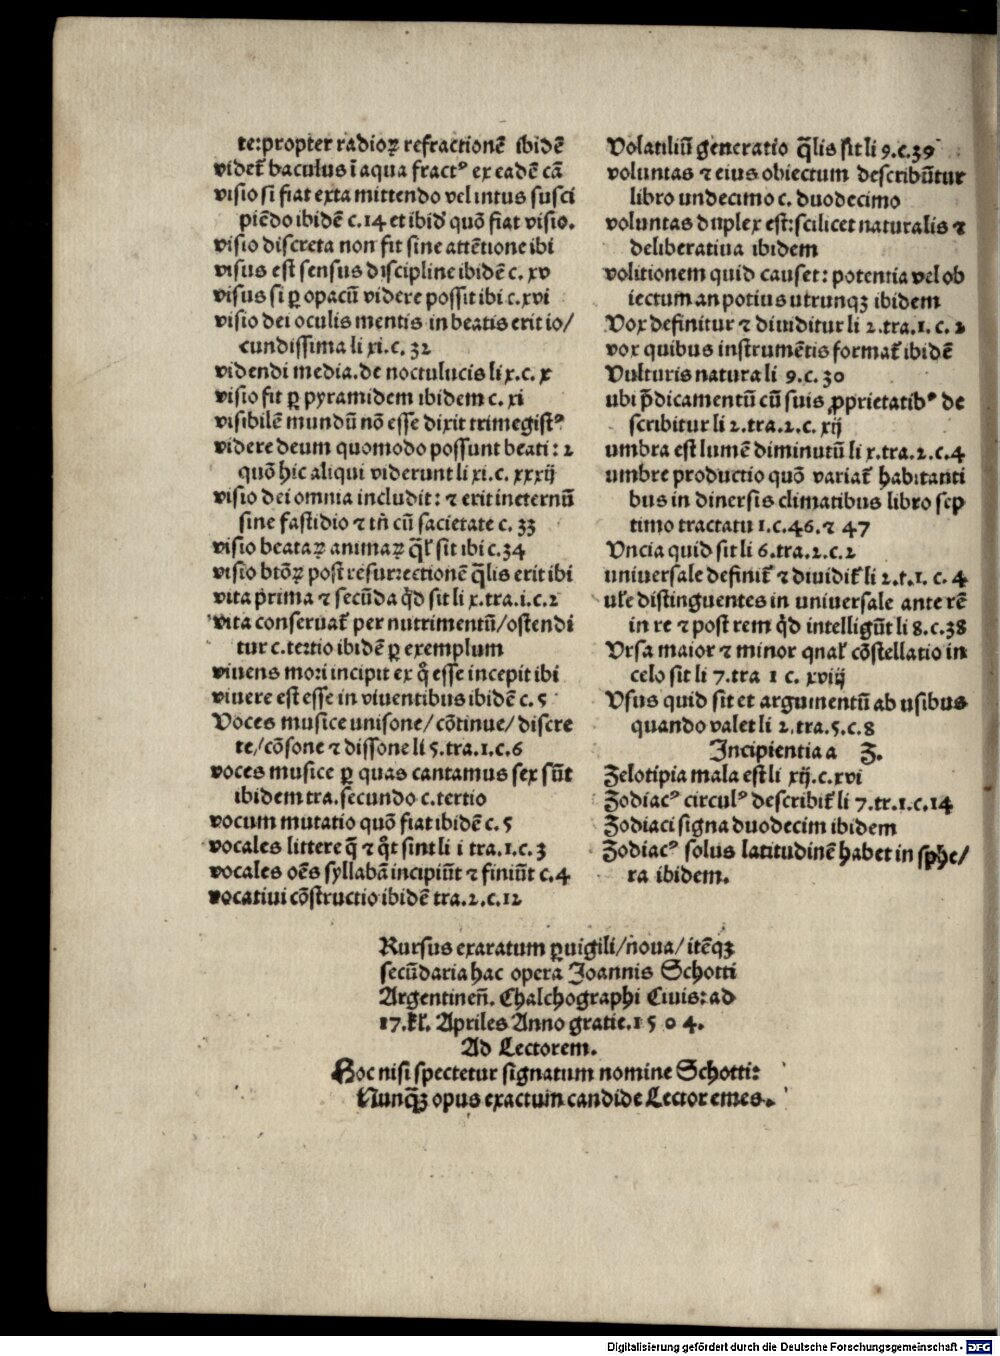 te:propter radioꝝ refractionē ibidē
videt᷑ baculus ī aqua fractꝰ ex eadē cā
visio si fiat exta mittendo vel intus susci
piēdo ibidē c.14 et ibid' quō fiat visio.
visio discreta non fit sine attētione ibi
visus est sensus discipline ibidē c. xv
visus si ꝑ opacū videre possit ibi c.xvi
visio dei oculis mentis in beatis erit io/
cundissima li xi.c. 32
videndi media.de noctulucis li x.c. x
visio fit ꝑ pyramidem ibidem c. xi
visibilē mundū nō esse dixit trimegistꝰ
videre deum quomodo possunt beati: ⁊
quō hic aliqui viderunt li xi.c. xxxij
visio dei omnia includit: ⁊ erit in eternū
sine fastidio ⁊ tñ cū sacietate c. 33
visio beataꝝ animaꝝ q̄l᷑ sit ibi c.34
visio btōꝝ post resurrectionē q̄lis erit ibi
vita prima ⁊ secūda qd̄ sit li x.tra.i.c.2
vita conseruat᷑ per nutrimentū/ostendi
tur c.tertio ibidē ꝑ exemplum
viuens mori incipit ex q̊ esse incepit ibi
viuere est esse in viuentibus ibidē c. 5
Voces musice unisone/cōtinue/discre
te/cōsone ⁊ dissone li 5.tra.1.c.6
voces musice ꝑ quas cantamus sex sūt
ibidem tra.secundo c.tertio
vocum mutatio quō fiat ibidē c. 5
vocales littere q̄ ⁊ q̊t sint li i tra.1.c. 3
vocales oēs syllabā incipiūt ⁊ finiūt c.4
vocatiui cōstructio ibidē tra.2.c.12
Volatiliū generatio q̄lis sit li 9.c.39
voluntas ⁊ eius obiectum describūtur
libro undecimo c. duodecimo
voluntas duplex est:scilicet naturalis ⁊
deliberatiua ibidem
volitionem quid causet: potentia vel ob
iectum an potius utrunqꝫ ibidem
Vox definitur ⁊ diuiditur li 2.tra.1. c. 2
vox quibus instrumētis format᷑ ibidē
Vulturis natura li 9.c. 30
ubi p̄dicamentū cū suis ꝓprietatibꝰ de
scribitur li 2.tra.2.c. xij
umbra est lumē diminutū li x.tra.2.c.4
umbre productio quō variat᷑ habitanti
bus in diuersis climatibus libro sep
timo tractatu 1.c.46.⁊ 47
Vncia quid sit li 6.tra.2.c.2
uniuersale definit᷑ ⁊ diuidit᷑ li 2.t.1. c. 4
ul᷑e distinguentes in uniuersale ante rē
in re ⁊ post rem qd̄ intelligūt li 8.c.38
Vrsa maior ⁊ minor qual᷑ cōstellatio in
celo sit li 7.tra 1 c. xviij
Vsus quid sit et argumentū ab usibus
quando valet li 2.tra.5.c.8
Incipientia a Z.
Zelotipia mala est li xij.c.xvi
Zodiacꝰ circulꝰ describit᷑ li 7.tr.1.c.14
Zodiaci signa duodecim ibidem
Zodiacꝰ solus latitudinē habet in sphe/
ra ibidem.
Rursus exaratum ꝑuigili/noua/itēqꝫ
secūdaria hac opera Joannis Schotti
Argentineñ. Chalchographi Ciuis:ad
17.kl᷑. Apriles Anno gratie.1504.
Ad Lectorem.
Hoc nisi spectetur signatum nomine Schotti:
Nunq̄ꝫ opus exactum candide Lector emes.
Digitalisierung gefördert durch die Deutsche Forschungsgemeinschaft - DFG